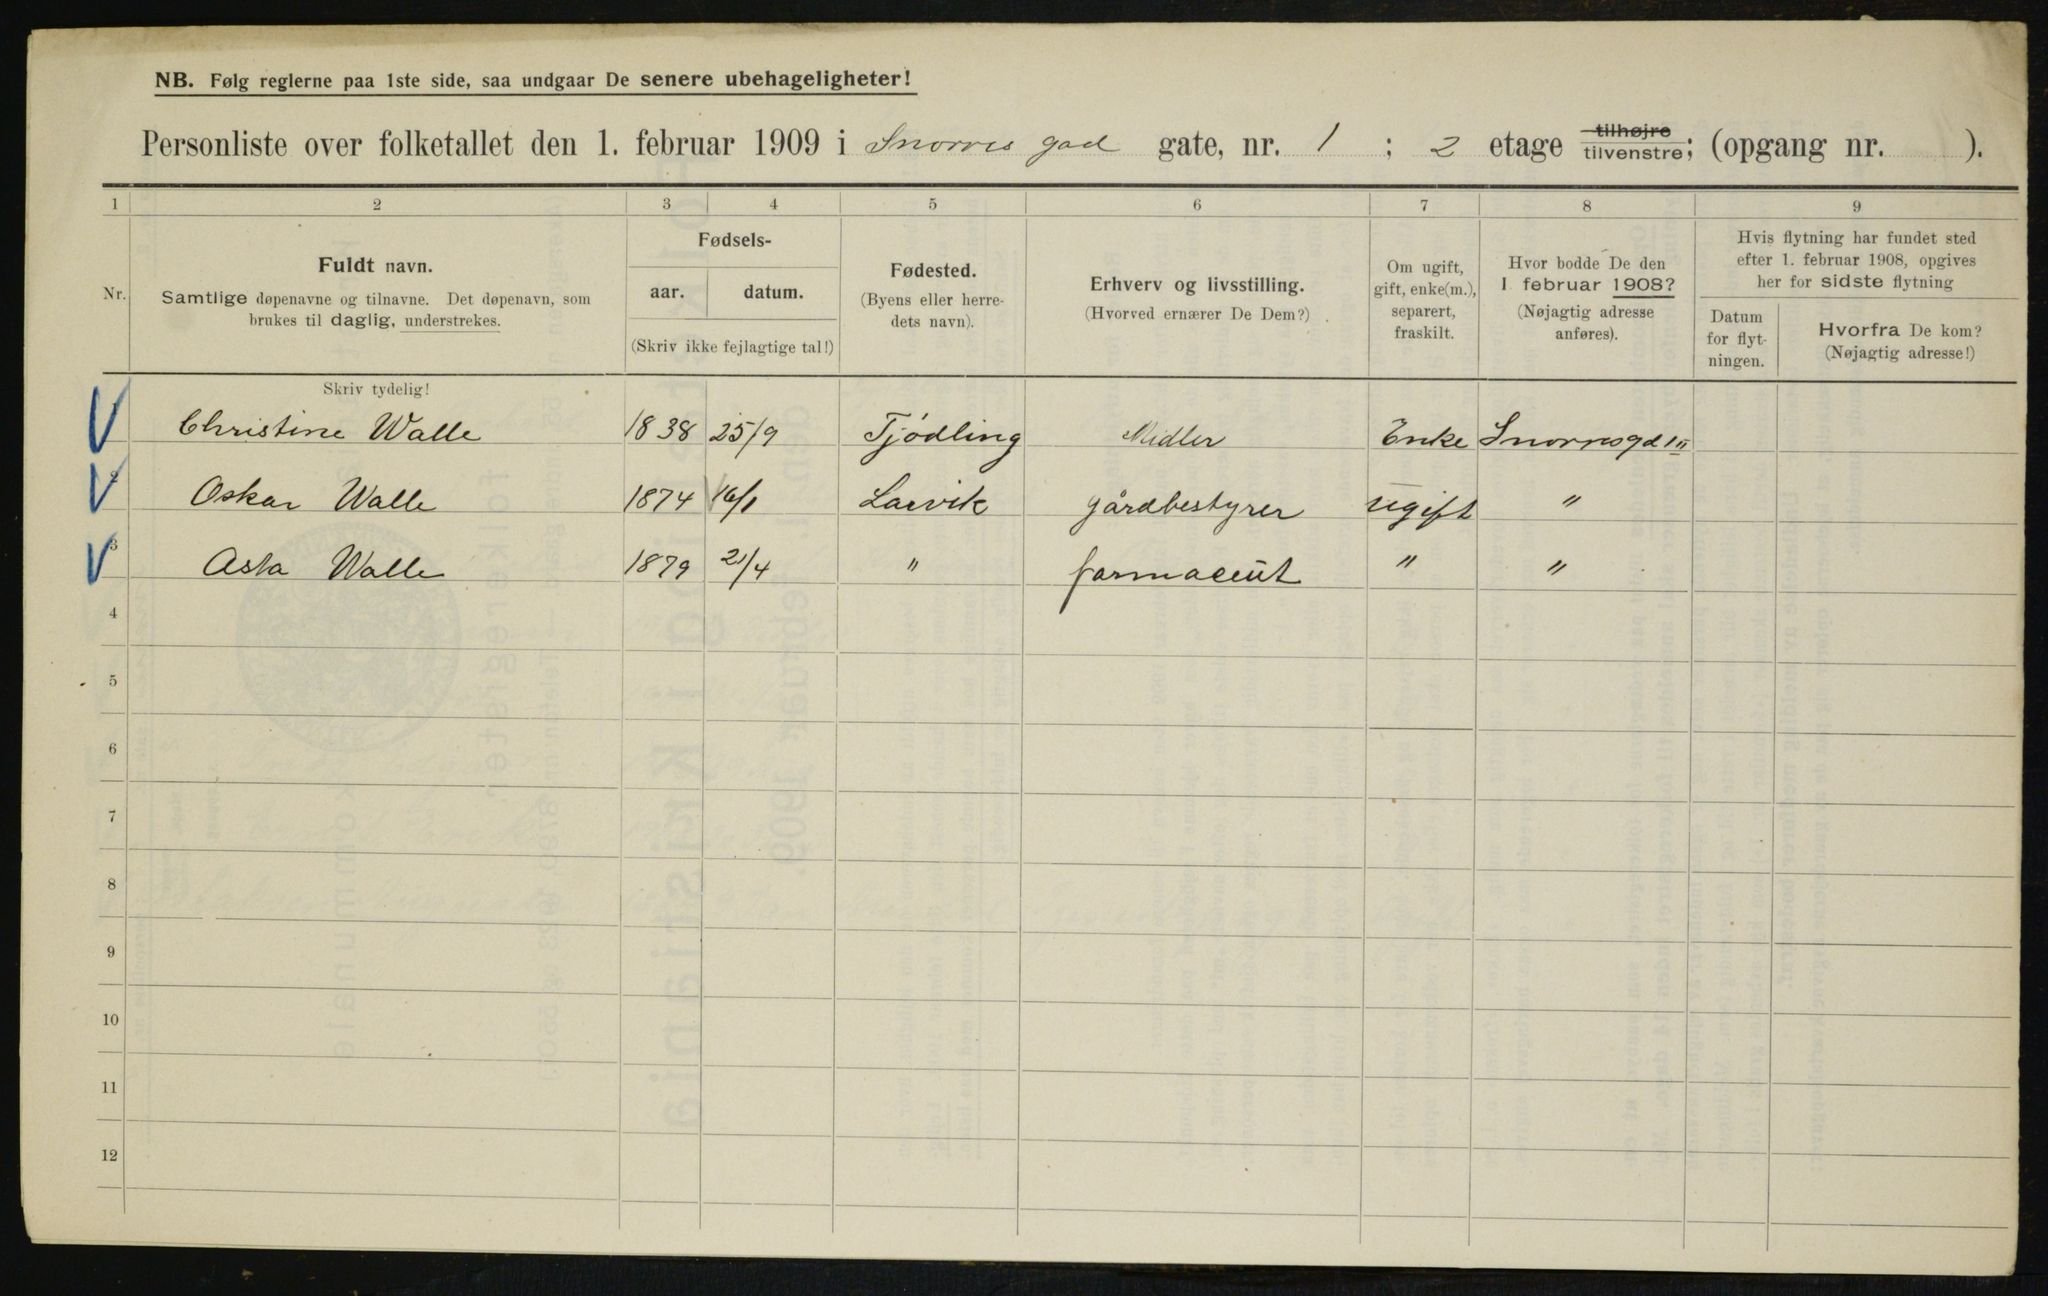 NB. Følg reglerne paa 1ste side, saa undgaar De senere ubehageligheter!
Personliste over folketallet den 1. februar 1909 i Snorres gad gate, nr. 1 ; 2 etage tilhøjre tilvenstre; (opgang nr. ).
1 2 3 4 5 6 7 8 9
Nr.
Fuldt navn.
Samtlige døpenavne og tilnavne. Det døpenavn, som
brukes til daglig, understrekes.
Fødsels-
aar. datum.
(Skriv ikke fejlagtige tal!)
Fødested.
(Byens eller herre-
dets navn).
Erhverv og livsstilling.
(Hvorved ernærer De Dem?)
Om ugift,
gift, enke(m.),
separert,
fraskilt.
Hvor bodde De den
1. februar 1908?
(Nøjagtig adresse
anføres).
Hvis flytning har fundet sted
efter 1. februar 1908, opgives
her for sidste flytning
Datum
for flyt-
ningen.
Hvorfra De kom?
(Nøjagtig adresse!)
Skriv tydelig!
1 Christine Walle 1838 25/9 Tjödling Midler Enke Snorresgd 1 II
2 Oskar Walle 1874 16/1 Larvik gårdbestyrer ugift "
3 Asta Walle 1879 21/4 " farmaceut " "
4
5
6
7
8
9
10
11
12